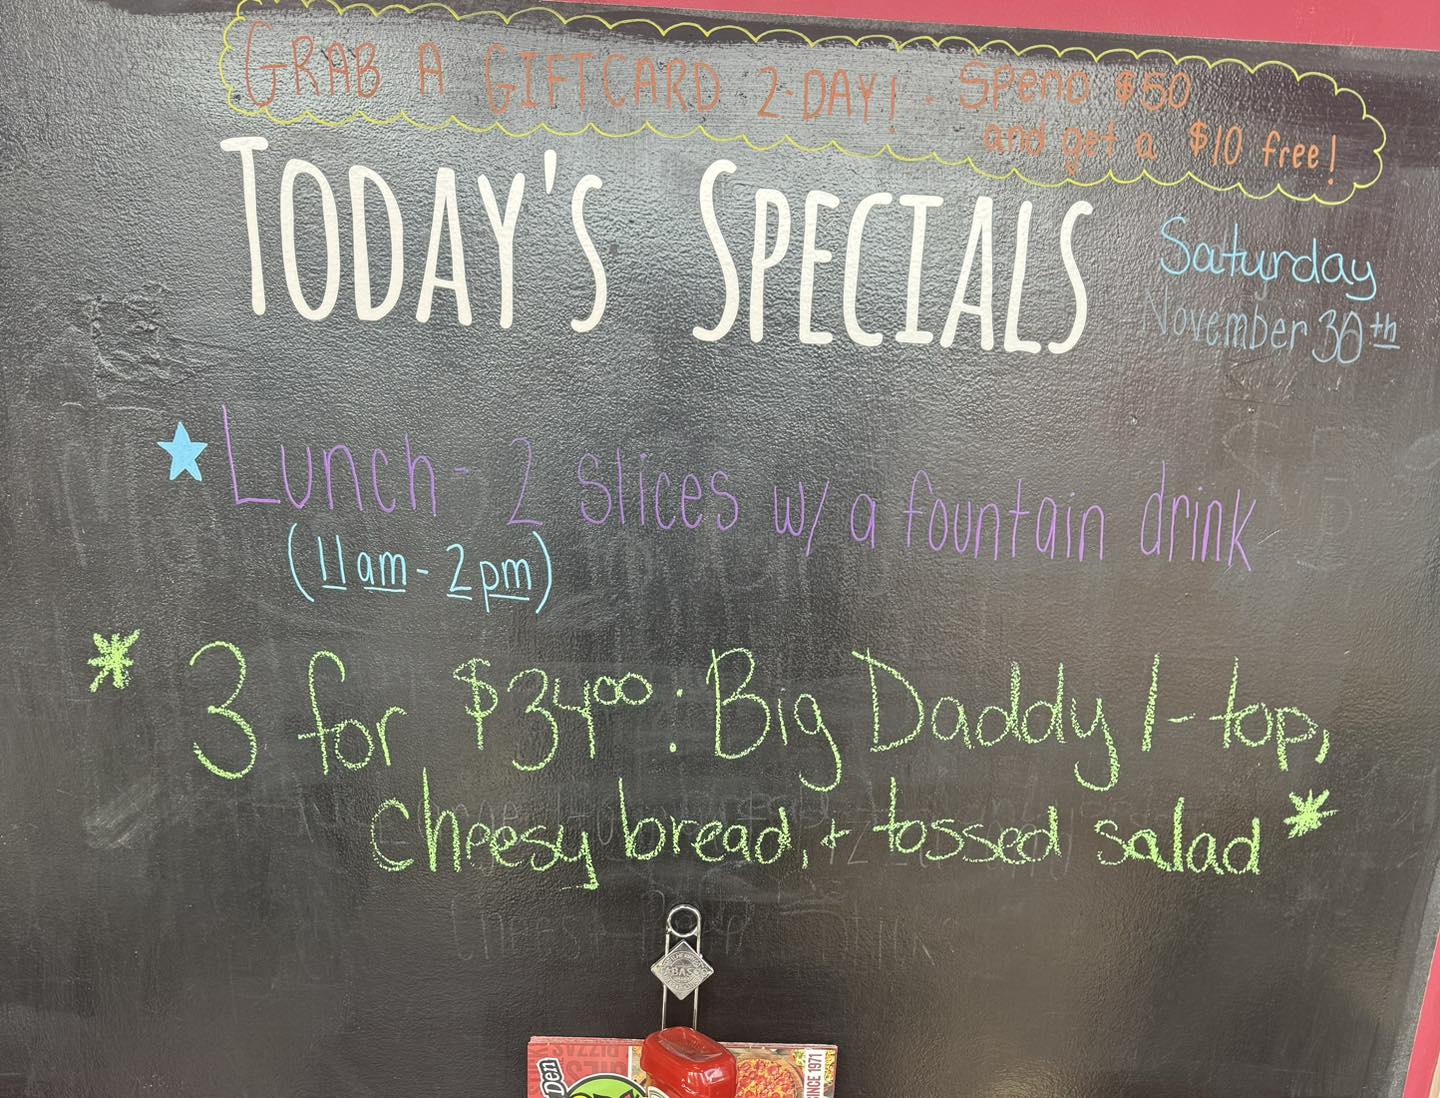 GRAB A GIFTCARD 2-DAY! - Spend $50
and get a $10 free!
TODAY'S SPECIALS
Saturday
November 30th
Lunch - 2 slices w/ a fountain drink
(11am - 2pm)
3 for $3400: Big Daddy 1-top,
cheesy bread, + tossed salad
Den
SINCE 1971